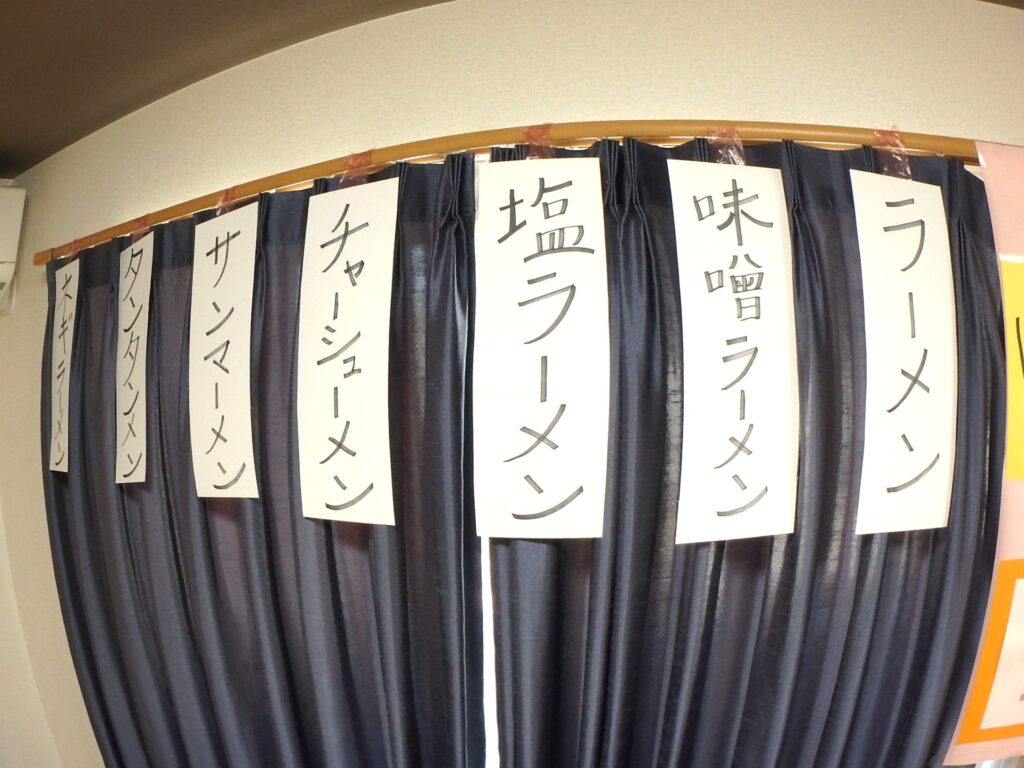 ラーメン
味噌ラーメン
塩ラーメン
チャーシューメン
サンマーメン
タンタンメン
ネギラーメン